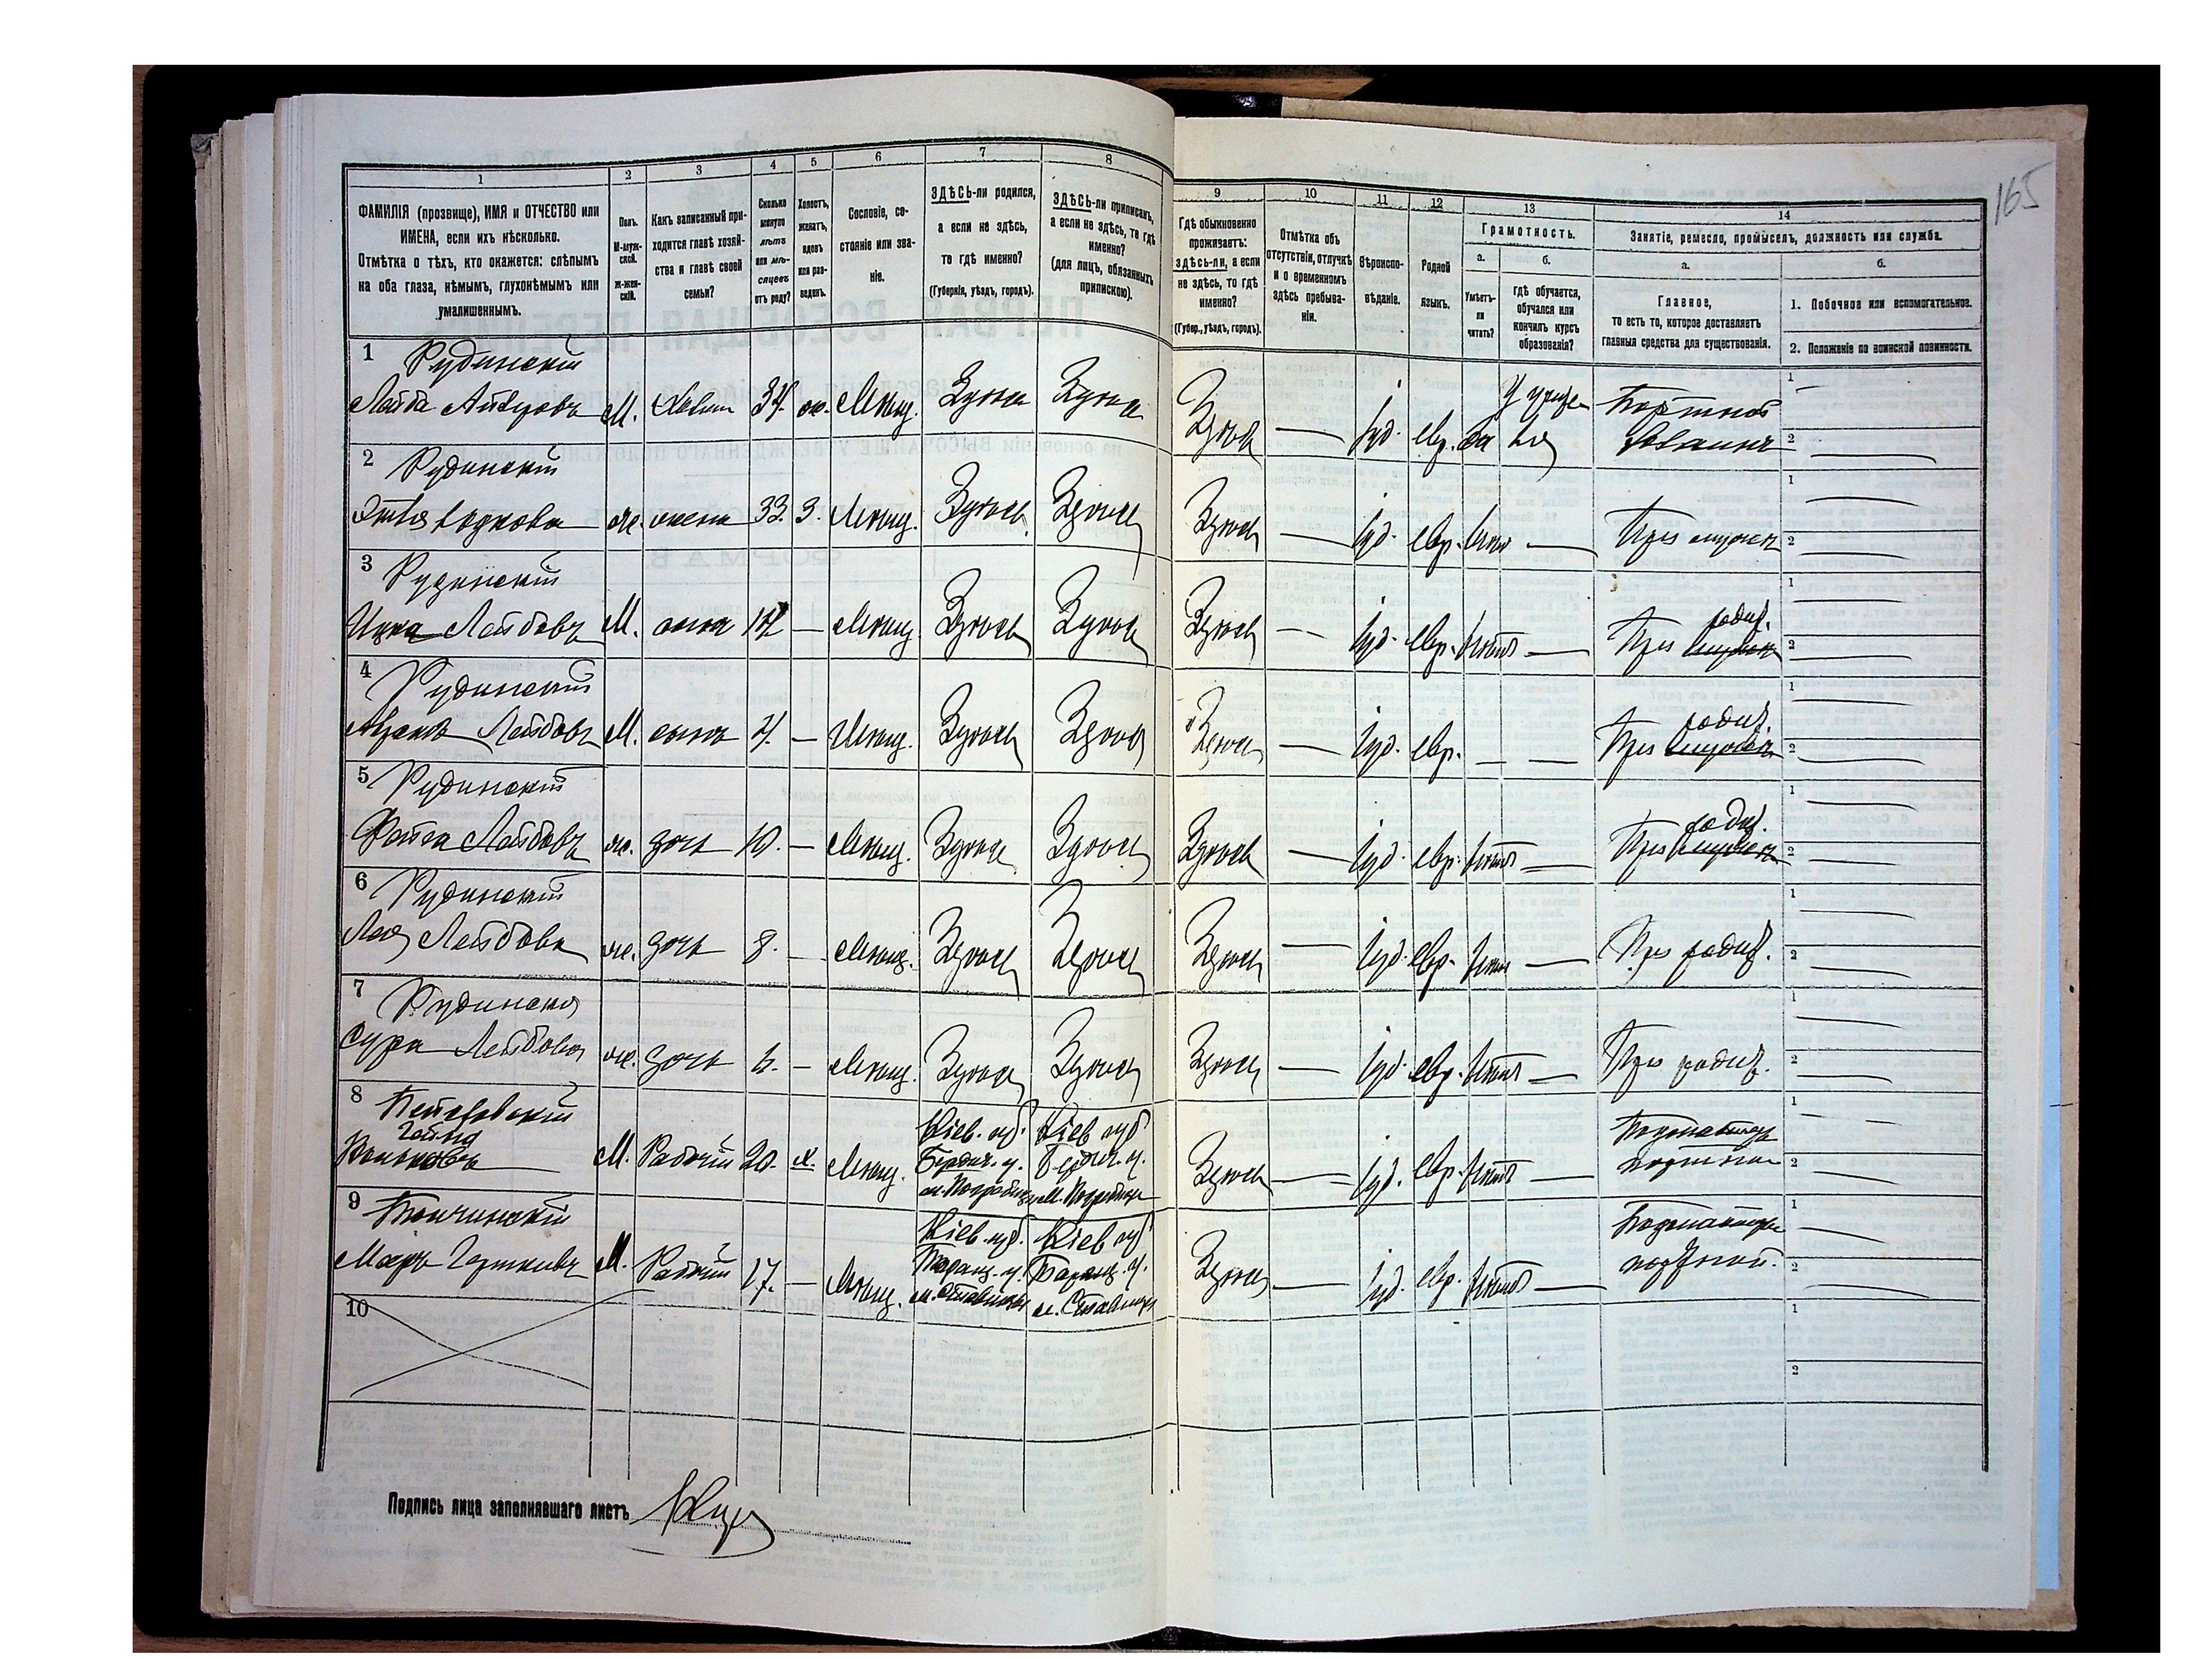 165
1
2
3
4
5
6
7
8
9
10
11
12
13
14
ФАМИЛІЯ (прозвище), ИМЯ и ОТЧЕСТВО или
ИМЕНА, если ихъ нѣсколько.
Отмѣтка о тѣхъ, кто окажется: слѣпымъ
на оба глаза, нѣмымъ, глухонѣмымъ или
умалишеннымъ.
Полъ.
М-муж-
ской.
ж-жен-
скій.
Какъ записанный при-
ходится главѣ хозяй-
ства и главѣ своей
семьи?
Сколько
минуло
лѣтъ
или мѣ-
сяцевъ
отъ роду?
Холостъ,
женатъ,
вдовъ
или раз-
веденъ.
Сословіе, со-
стояніе или зва-
ніе.
ЗДѢСЬ-ли родился,
а если не здѣсь,
то гдѣ именно?
(Губернія, уѣздъ, городъ).
ЗДѢСЬ-ли приписанъ,
а если не здѣсь, то гдѣ
именно?
(для лицъ, обязанныхъ
припискою).
Гдѣ обыкновенно
проживаетъ:
здѣсь-ли, а если
не здѣсь, то гдѣ
именно?
(Губер., уѣздъ, городъ).
Отмѣтка объ
отсутствіи, отлучкѣ
и о временномъ
здѣсь пребыва-
ніи.
Вѣроиспо-
вѣданіе.
Родной
языкъ.
Грамотность.
а.
Умѣетъ-
ли
читать?
б.
гдѣ обучается,
обучался или
кончилъ курсъ
образованія?
Занятіе, ремесло, промыселъ, должность или служба.
а.
Главное,
то есть то, которое доставляетъ
главныя средства для существованія.
б.
1. Побочное или вспомогательное.
2. Положеніе по воинской повинности.
1 Рудинскій
Лейба М. 34. ж. Мѣщ. Здѣсь Здѣсь Здѣсь — Іуд. евр. да Портной 1 — 2 —
2 Рудинскій
же. жена 33. З. Мѣщ. Здѣсь Здѣсь Здѣсь — Іуд. евр. нѣтъ — При мужѣ 1 — 2 —
3 Рудинскій
Ицко Лейбовъ М. сынъ — Мѣщ. Здѣсь Здѣсь Здѣсь — Іуд. евр. нѣтъ — При родит. 1 — 2 —
4 Рудинскій
Абрамъ Лейбовъ М. сынъ 4. — Мѣщ. Здѣсь Здѣсь Здѣсь — Іуд. евр. — — При родит. 1 — 2 —
5 Рудинскій
Лейбовъ же. дочь 10. — Мѣщ. Здѣсь Здѣсь Здѣсь — Іуд. евр. нѣтъ — При родит. 1 — 2 —
6 Рудинскій
Лея Лейбова же. дочь 8. — Мѣщ. Здѣсь Здѣсь Здѣсь — Іуд. евр. нѣтъ — При родит. 1 — 2 —
7 Рудинская
Сура Лейбова же. дочь — Мѣщ. Здѣсь Здѣсь Здѣсь — Іуд. евр. нѣтъ — При родит. 1 — 2 —
8
М. Рабочій 20. х. Мѣщ. Кіев. губ. Бердич. у. м. Погребище Кіев губ Бердич. у. м. Погребище Здѣсь — Іуд. евр. нѣтъ — 1 — 2 —
9
М. Рабочій 17. — Мѣщ. Кіев. губ. Таращ. у. м. Ставище Кіев губ Таращ. у. м. Ставище Здѣсь — Іуд. евр. нѣтъ — 1 — 2 —
10
1
2
Подпись лица заполнявшаго листъ